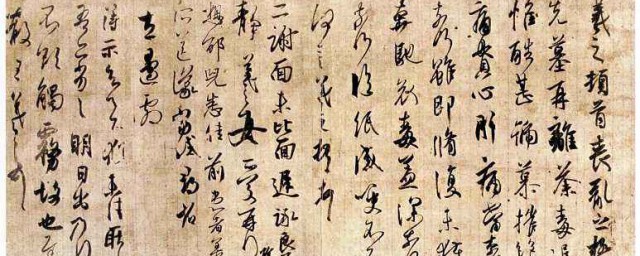 羲之頓首喪亂之極
先墓再離荼毒追
惟酷甚號慕摧絕
痛貫心肝痛當奈
奈何雖即脩復未獲
奔馳哀毒益深奈
奈何臨紙感哽不知
何言羲之頓首
二謝面未比面遲詠良
靜羲之女愛再拜
想邵兒悉佳前患者善
所送議當試尋省
左邊劇
得示知足下猶未佳耿
吾亦劣劣明日出乃行
不欲觸霧故也遲
散王羲之頓首